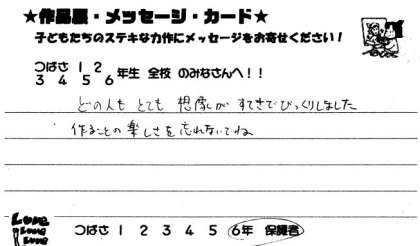 ★作品展・メッセージ・カード★
子どもたちのステキな力作にメッセージをお寄せください！
つばさ 1 2
3 4 5 6年生 全校 のみなさんへ！！
どの人も とても 想像が すてきでびっくりしました
作ることの楽しさを忘れないでね
Love
Love
Love
つばさ 1 2 3 4 5 6年 保護者